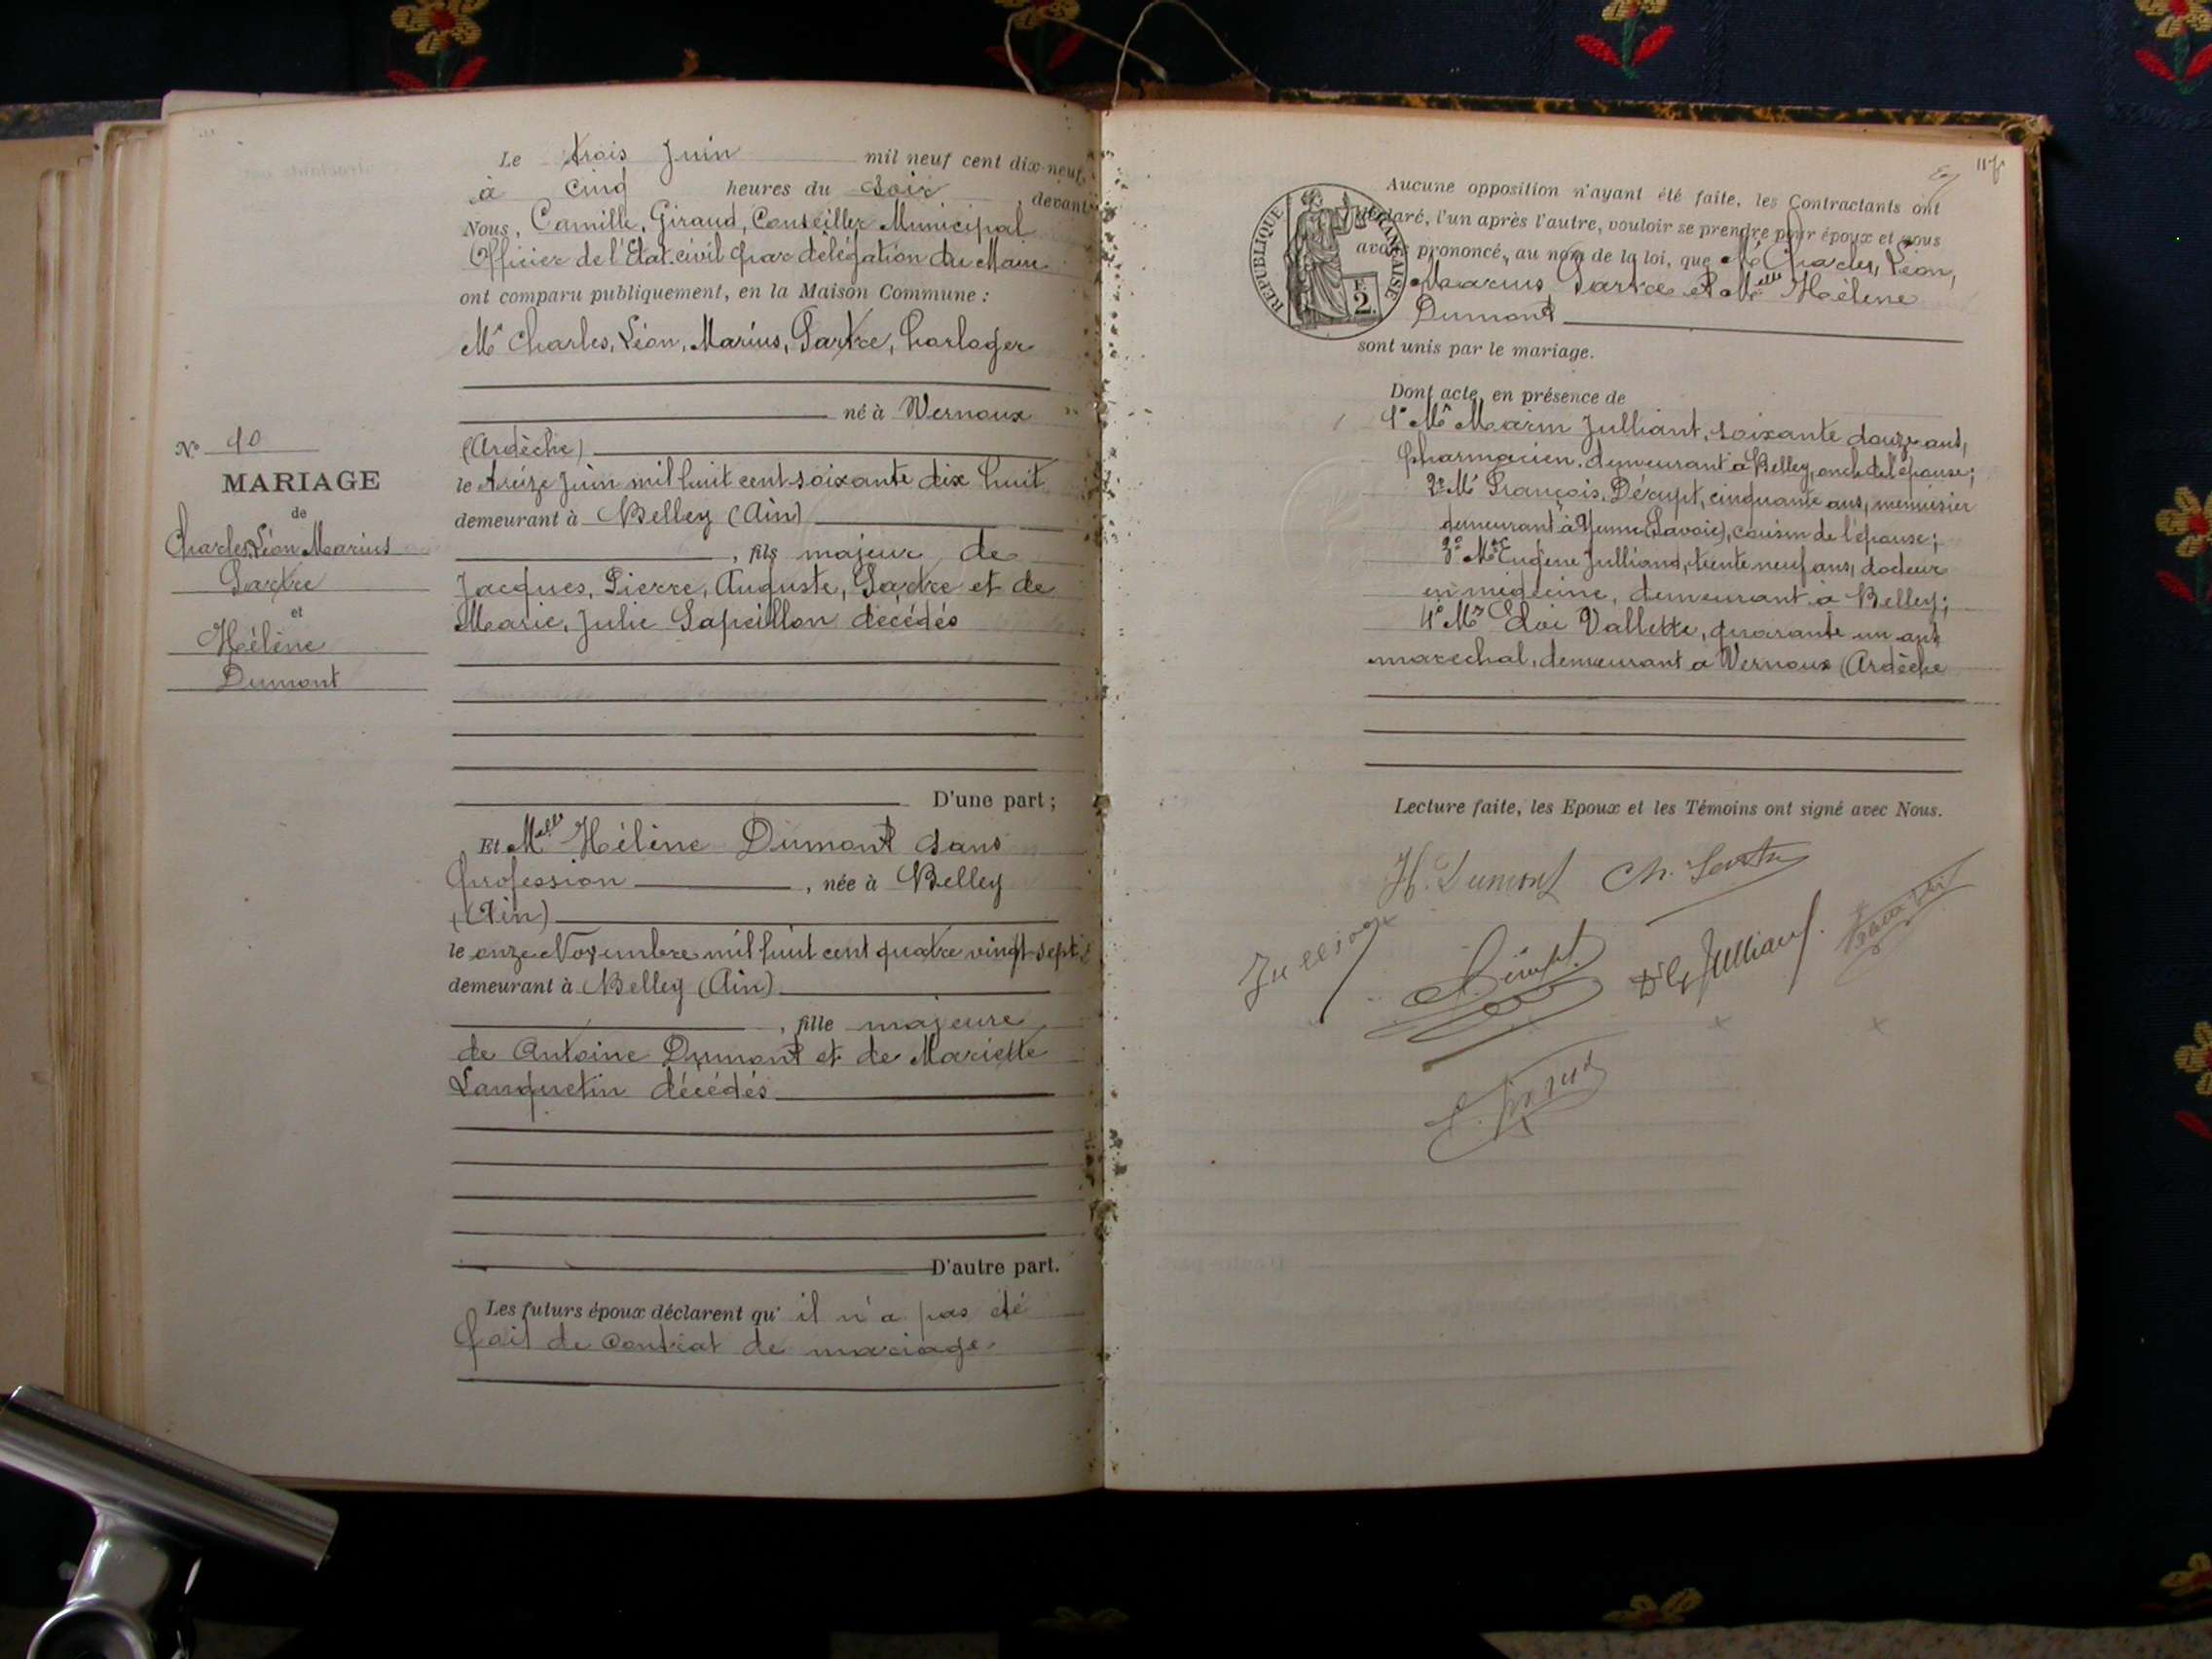 Le trois Juin mil neuf cent dix-neuf
à cinq heures du soir, devant
Nous, Camille, Giraud, Conseiller Municipal
Officier de l'Etat civil par délégation du Maire
ont comparu publiquement, en la Maison Commune :
Mr Charles, Léon, Marius, Sartre, horloger
né à Vernoux
(Ardèche)
le treize Juin mil huit cent soixante dix huit
demeurant à Belley (Ain)
, fils majeur de
Jacques, Pierre, Auguste, Sartre et de
Marie, Julie Lapeillon décédés
D'une part ;
Et Melle Hélène Dumont sans
profession, née à Belley
(Ain)
le onze Novembre mil huit cent quatre vingt-sept
demeurant à Belley (Ain)
, fille majeure
de Antoine Dumont et de Mariette
Lanquetin décédés
D'autre part.
Les futurs époux déclarent qu'il n'a pas été
fait de contrat de mariage.
No 40
MARIAGE
de
Charles, Léon Marius
Sartre
et
Hélène
Dumont
117
RÉPUBLIQUE FRANÇAISE
2
Aucune opposition n'ayant été faite, les Contractants ont
déclaré, l'un après l'autre, vouloir se prendre pour époux et nous
avons prononcé, au nom de la loi, que Mr Charles, Léon,
Marius Sartre et Melle Hélène
Dumont
sont unis par le mariage.
Dont acte, en présence de
1o Mr Marin Julliant, soixante douze ans,
pharmacien, demeurant à Belley, oncle de l'épouse ;
2o Mr François, Dérupt, cinquante ans, menuisier
demeurant à Yenne (Savoie), cousin de l'épouse ;
3o Mr Eugène Julliand, trente neuf ans, docteur
en médecine, demeurant à Belley ;
4o Mr Eloi Vallette, quarante un ans
maréchal, demeurant a Vernoux (Ardèche
Lecture faite, les Epoux et les Témoins ont signé avec Nous.
H. Dumont Ch. Sartre
Dérupt
Dr E. Julliand